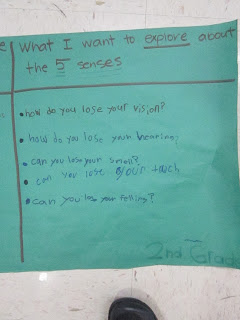 What I want to explore about
the 5 senses
• how do you lose your vision?
• how do you lose your hearing?
• can you lose your smell?
• can you lose your touch
• can you lose your felling?
2nd Grad